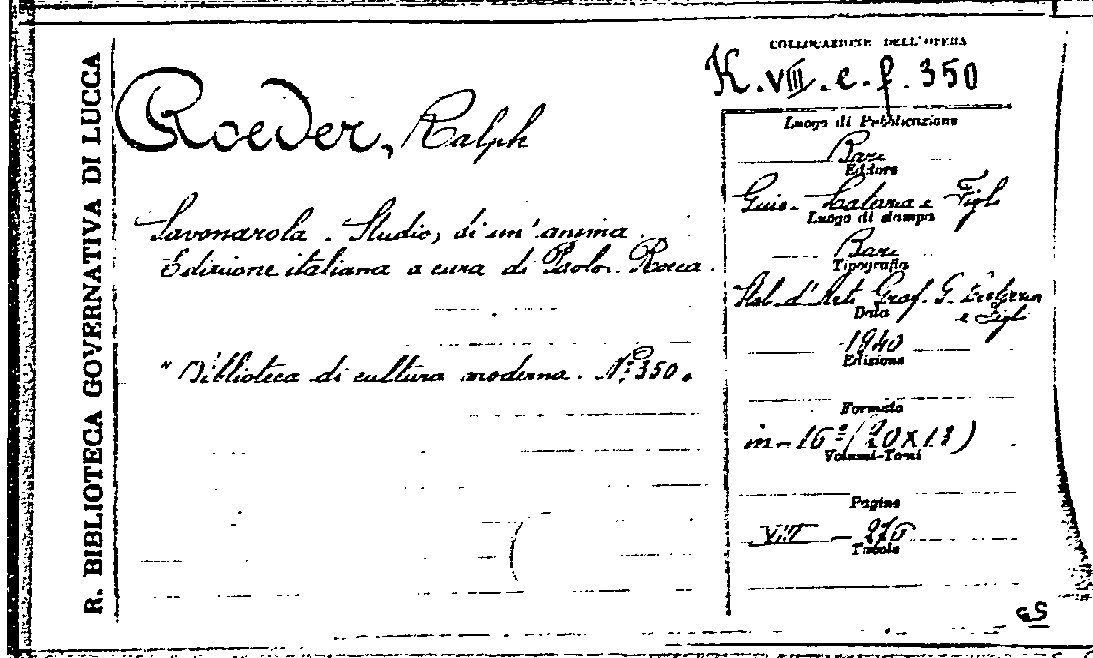 R. BIBLIOTECA GOVERNATIVA DI LUCCA
COLLOCAZIONE DELL'OPERA
K.VIII.e.f.350
Roeder, Ralph
Savonarola. Studio, di un'anima.
Edizione italiana a cura di Paolo. Rocca.
"Biblioteca di cultura moderna. N° 350.
Luogo di Pubblicazione
Bari
Editore
Figli
Luogo di stampa
Bari
Tipografia
Stab. d'Arti Graf. G.
e Figli
Data
1940
Edizione
Formato
in-16° (20x13)
Volumi-Tomi
Pagine
VIII - 270
Tavole